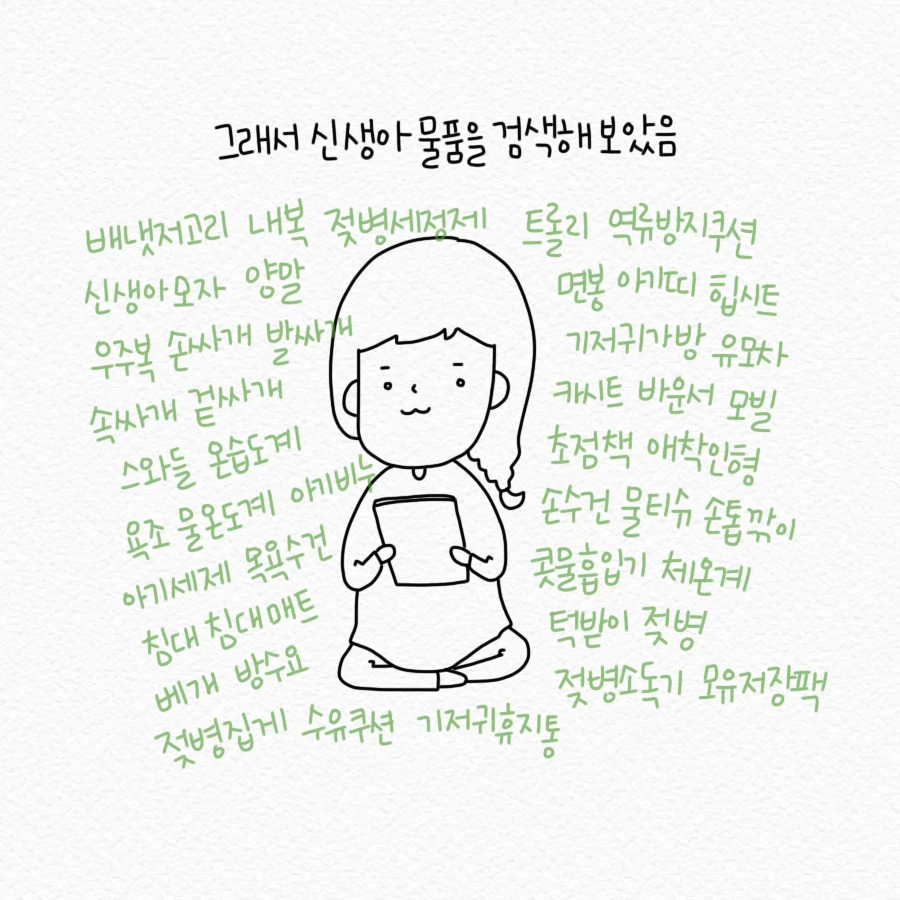 그래서 신생아 물품을 검색해 보았음
배냇저고리 내복 젖병세정제
신생아모자 양말
우주복 손싸개 발싸개
속싸개 겉싸개
스와들 온습도계
욕조 물온도계 아기비누
아기세제 목욕수건
침대 침대매트
베개 방수요
젖병집게 수유쿠션 기저귀휴지통
트롤리 역류방지쿠션
면봉 아기띠 힙시트
기저귀가방 유모차
카시트 바운서 모빌
초점책 애착인형
손수건 물티슈 손톱깎이
콧물흡입기 체온계
턱받이 젖병
젖병소독기 모유저장팩